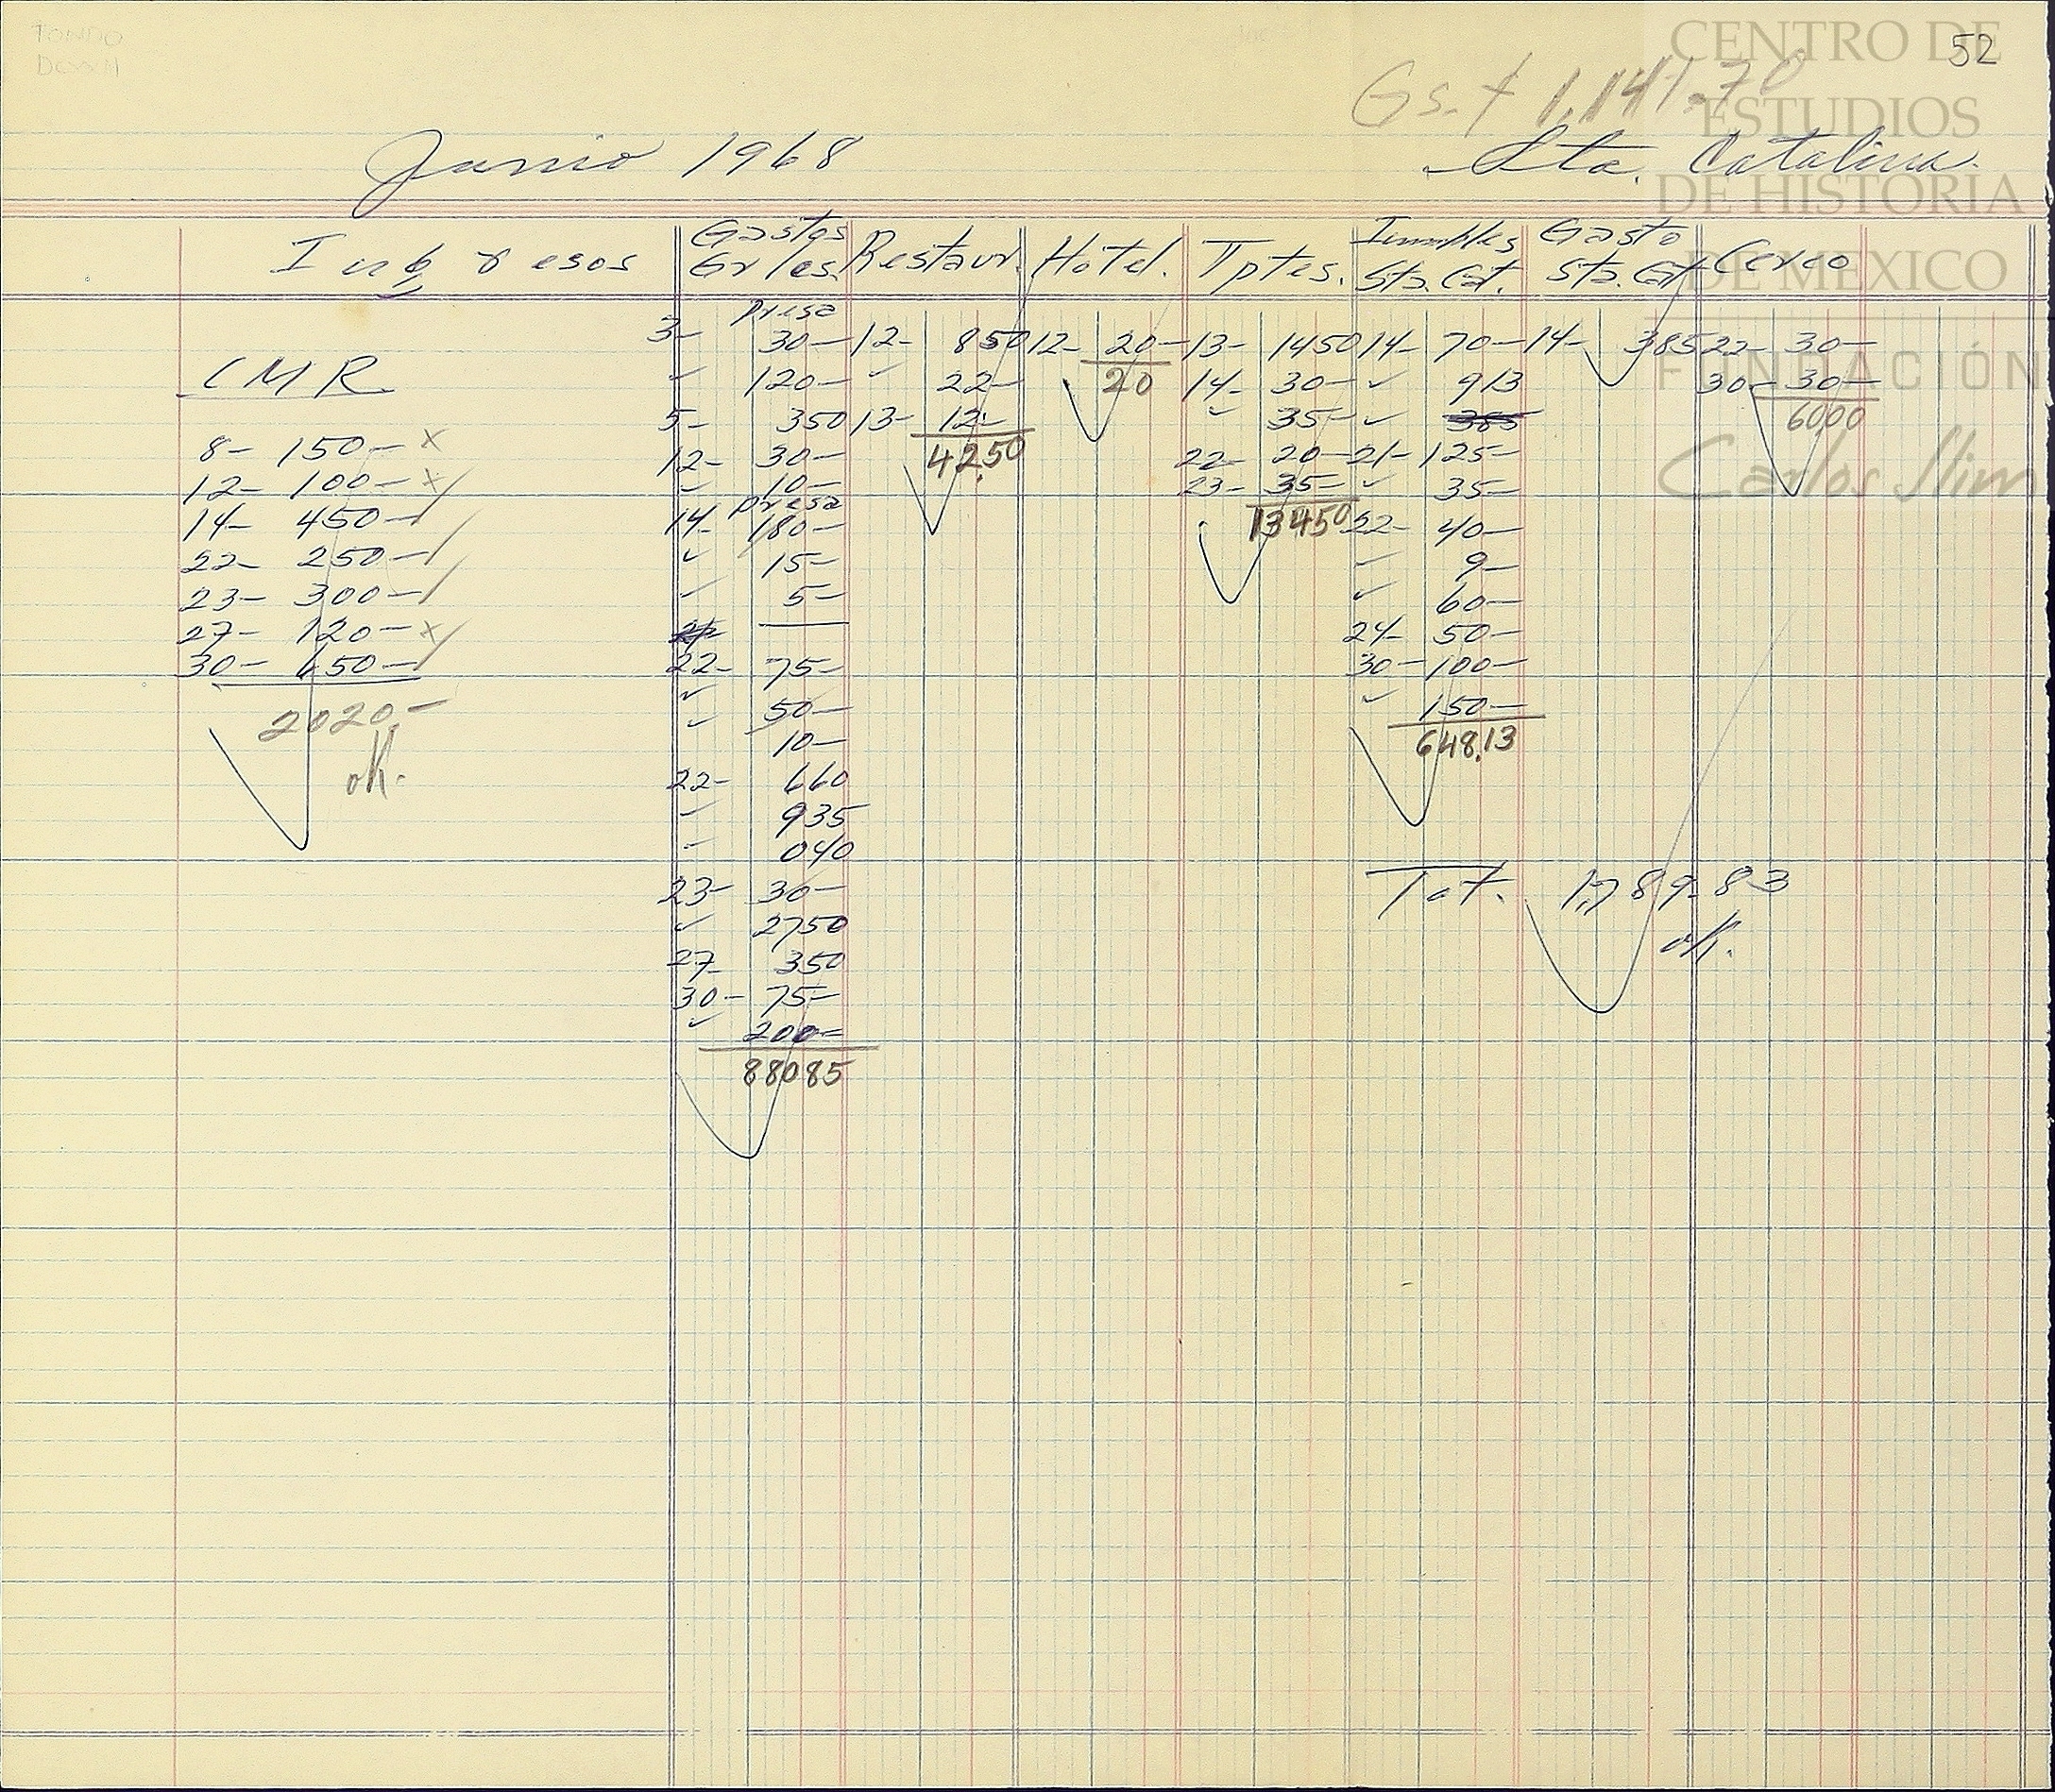 FONDO
52
CENTRO DE
ESTUDIOS
DE HISTORIA
DE MEXICO
FUNDACIÓN
Carlos Slim
Gs. $ 1,141.70
Junio 1968 Sta. Catalina.
Ingresos Gastos Grles. Restaur. Hotel. Tptes. Inmbles Sta. Cat. Gasto Sta. Cat. Cerco
presa
3- 30- 12- 850 12- 20- 13- 1450 14- 70- 14- 385 22- 30-
CMR ✓ 120- ✓ 22- 20 14- 30- ✓ 913 30- 30-
5- 350 13- 12- ✓ 35- ✓ 385 6000
8- 150- x 12- 30- 42.50 22- 20- 21- 125-
12- 100- x/ ✓ 10- 23- 35- ✓ 35-
presa
14- 450-/ 14- 180- 13450 22- 40-
22- 250-/ ✓ 15- ✓ 9-
23- 300-/ ✓ 5- ✓ 60-
27- 120- x/ 24- 50-
30- 650-/ 22- 75- 30- 100-
2020.- ✓ 50- ✓ 150-
ok. ✓ 10- 648.13
22- 660
✓ 935
✓ 040
23- 30- Tot. 1,789.83
✓ 2750 ok.
27- 350
30- 75-
✓ 200=
88085